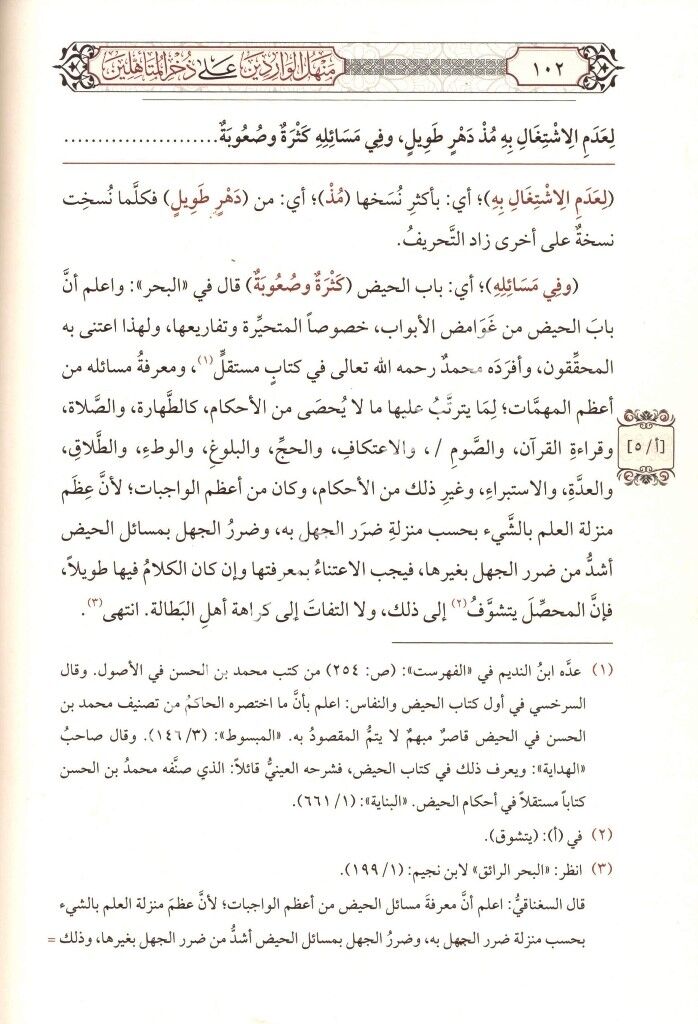 ١٠٢
منهل الواردين على ذخر المتأهلين
لِعَدَمِ الِاشْتِغَالِ بِهِ مُذْ دَهْرٍ طَوِيلٍ، وفِي مَسَائِلِهِ كَثْرَةٌ وصُعُوبَةٌ......................
(لِعَدَمِ الِاشْتِغَالِ بِهِ)؛ أي: بأكثرِ نُسَخها (مُذْ)؛ أي: من (دَهْرٍ طَوِيلٍ) فكلَّما نُسخِت
نسخةٌ على أخرى زاد التَّحريفُ.
(وفِي مَسَائِلِهِ)؛ أي: باب الحيض (كَثْرَةٌ وصُعُوبَةٌ) قال في «البحر»: واعلم أنَّ
بابَ الحيض من غَوَامض الأبواب، خصوصاً المتحيِّرة وتفاريعها، ولهذا اعتنى به
المحقِّقون، وأفرَدَه محمدٌ رحمه الله تعالى في كتابٍ مستقلٍّ(١)، ومعرفةُ مسائله من
أعظم المهمَّات؛ لِمَا يترتَّبُ عليها ما لا يُحصَى من الأحكام، كالطَّهارة، والصَّلاة،
وقراءةِ القرآن، والصَّومِ /، والاعتكافِ، والحجِّ، والبلوغِ، والوطءِ، والطَّلاقِ،
[أ/ ٥]
والعدَّةِ، والاستبراءِ، وغيرِ ذلك من الأحكام، وكان من أعظم الواجبات؛ لأنَّ عِظَم
منزلة العلم بالشَّيء بحسب منزلةِ ضرَر الجهل به، وضررُ الجهل بمسائل الحيض
أشدُّ من ضرر الجهل بغيرها، فيجب الاعتناءُ بمعرفتها وإن كان الكلامُ فيها طويلاً،
فإنَّ المحصِّلَ يتشوَّفُ(٢) إلى ذلك، ولا التفاتَ إلى كراهة أهلِ البَطالة. انتهى(٣).
(١) عدَّه ابنُ النديم في «الفهرست»: (ص: ٢٥٤) من كتب محمد بن الحسن في الأصول. وقال
السرخسي في أول كتاب الحيض والنفاس: اعلم بأنَّ ما اختصره الحاكمُ من تصنيف محمد بن
الحسن في الحيض قاصرٌ مبهمٌ لا يتمُّ المقصودُ به. «المبسوط»: (٣/ ١٤٦). وقال صاحبُ
«الهداية»: ويعرف ذلك في كتاب الحيض، فشرحه العينيُّ قائلاً: الذي صنَّفه محمدُ بن الحسن
كتاباً مستقلاً في أحكام الحيض. «البناية»: (١/ ٦٦١).
(٢) في (أ): (يتشوق).
(٣) انظر: «البحر الرائق» لابن نجيم: (١/ ١٩٩).
قال السغناقيُّ: اعلم أنَّ معرفةَ مسائل الحيض من أعظم الواجبات؛ لأنَّ عظمَ منزلة العلم بالشيء
بحسب منزلة ضرر الجهل به، وضررُ الجهل بمسائل الحيض أشدُّ من ضرر الجهل بغيرها، وذلك =